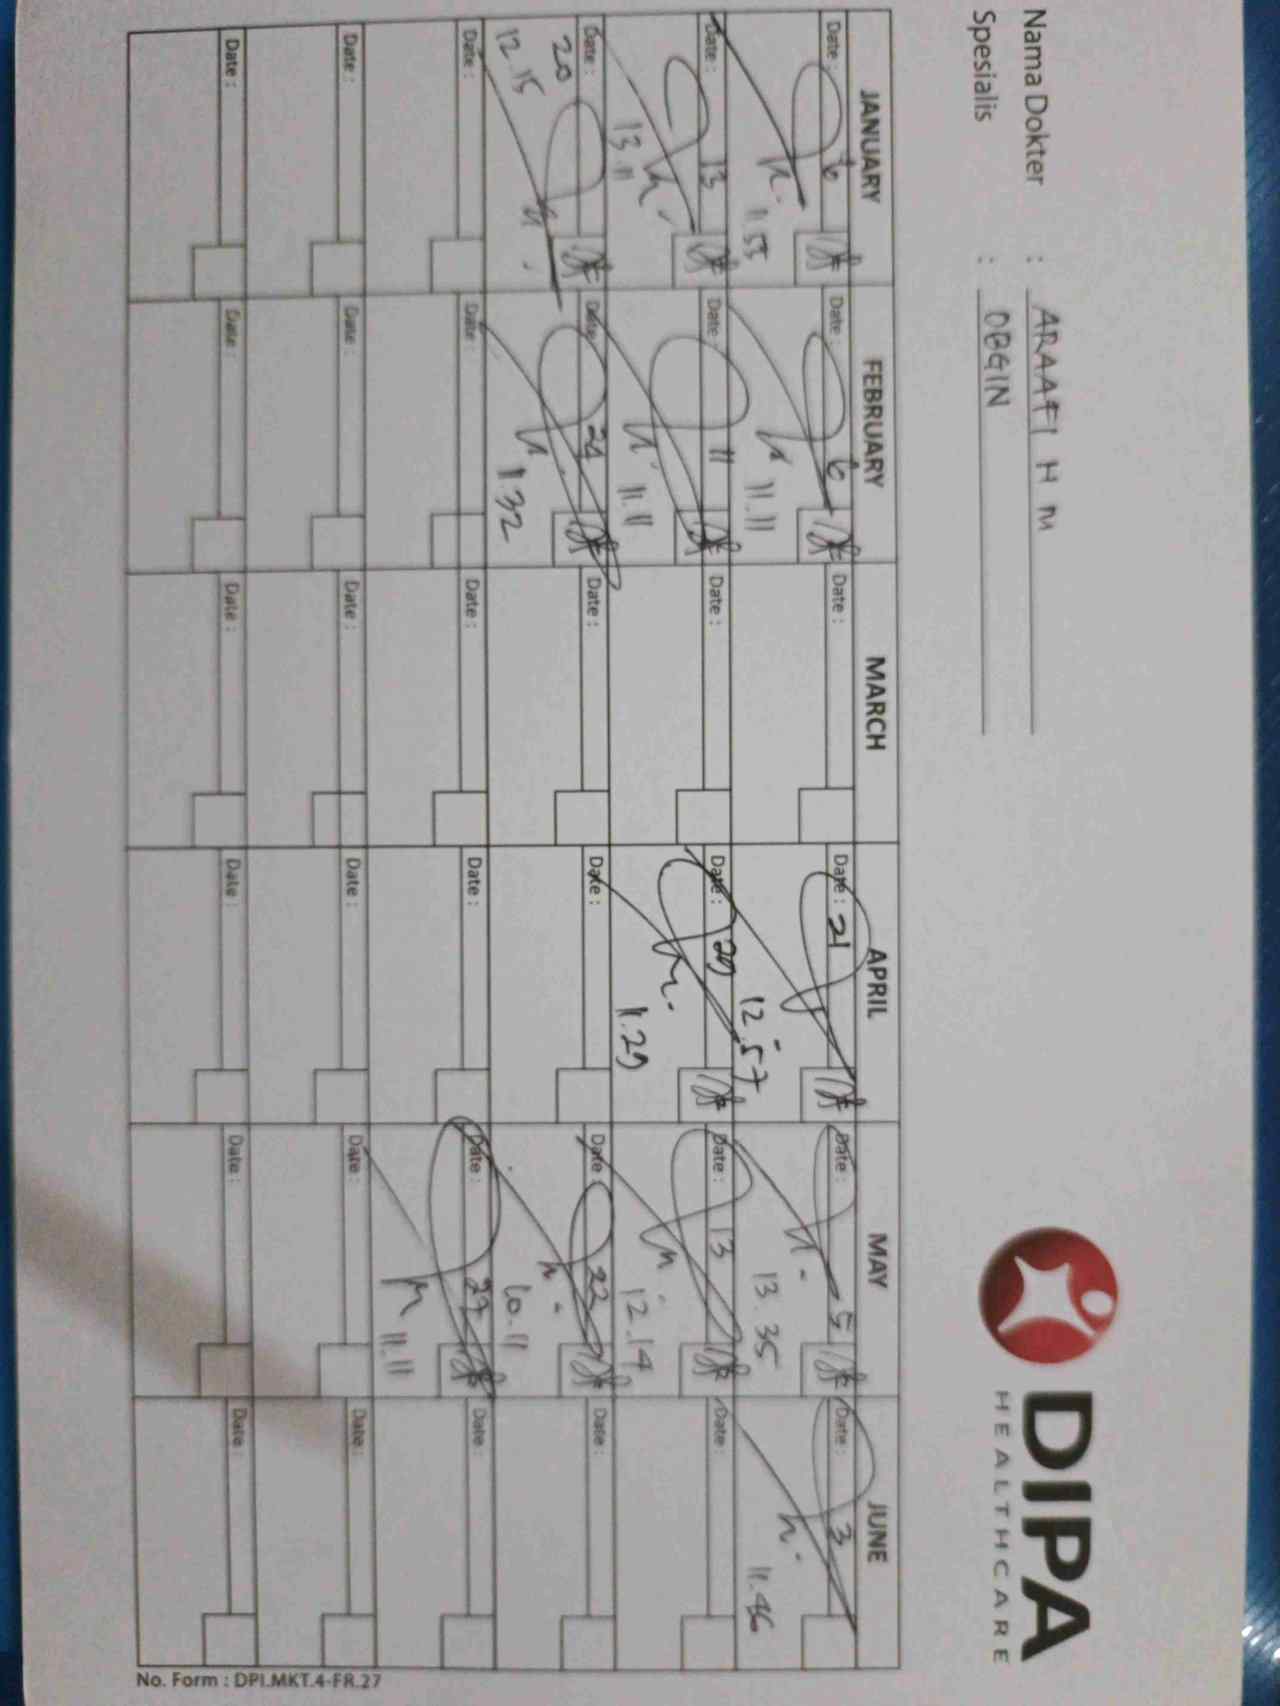 DIPA
HEALTHCARE
Nama Dokter : ARAAFI H M
Spesialis : OBGIN
JANUARY FEBRUARY MARCH APRIL MAY JUNE
Date : 6 Date : 6 Date : Date : 21 Date : 5 Date : 3
11.55 11.11 12.57 13.35 11.46
Date : 13 Date : 11 Date : Date : 29 Date : 13 Date :
13.11 11.11 11.29 12.14
Date : 20 Date : 24 Date : Date : Date : 22 Date :
12.15 11.32 10.11
Date : Date : Date : Date : Date : 27 Date :
11.11
Date : Date : Date : Date : Date : Date :
Date : Date : Date : Date : Date : Date :
No. Form : DPI.MKT.4-FR.27